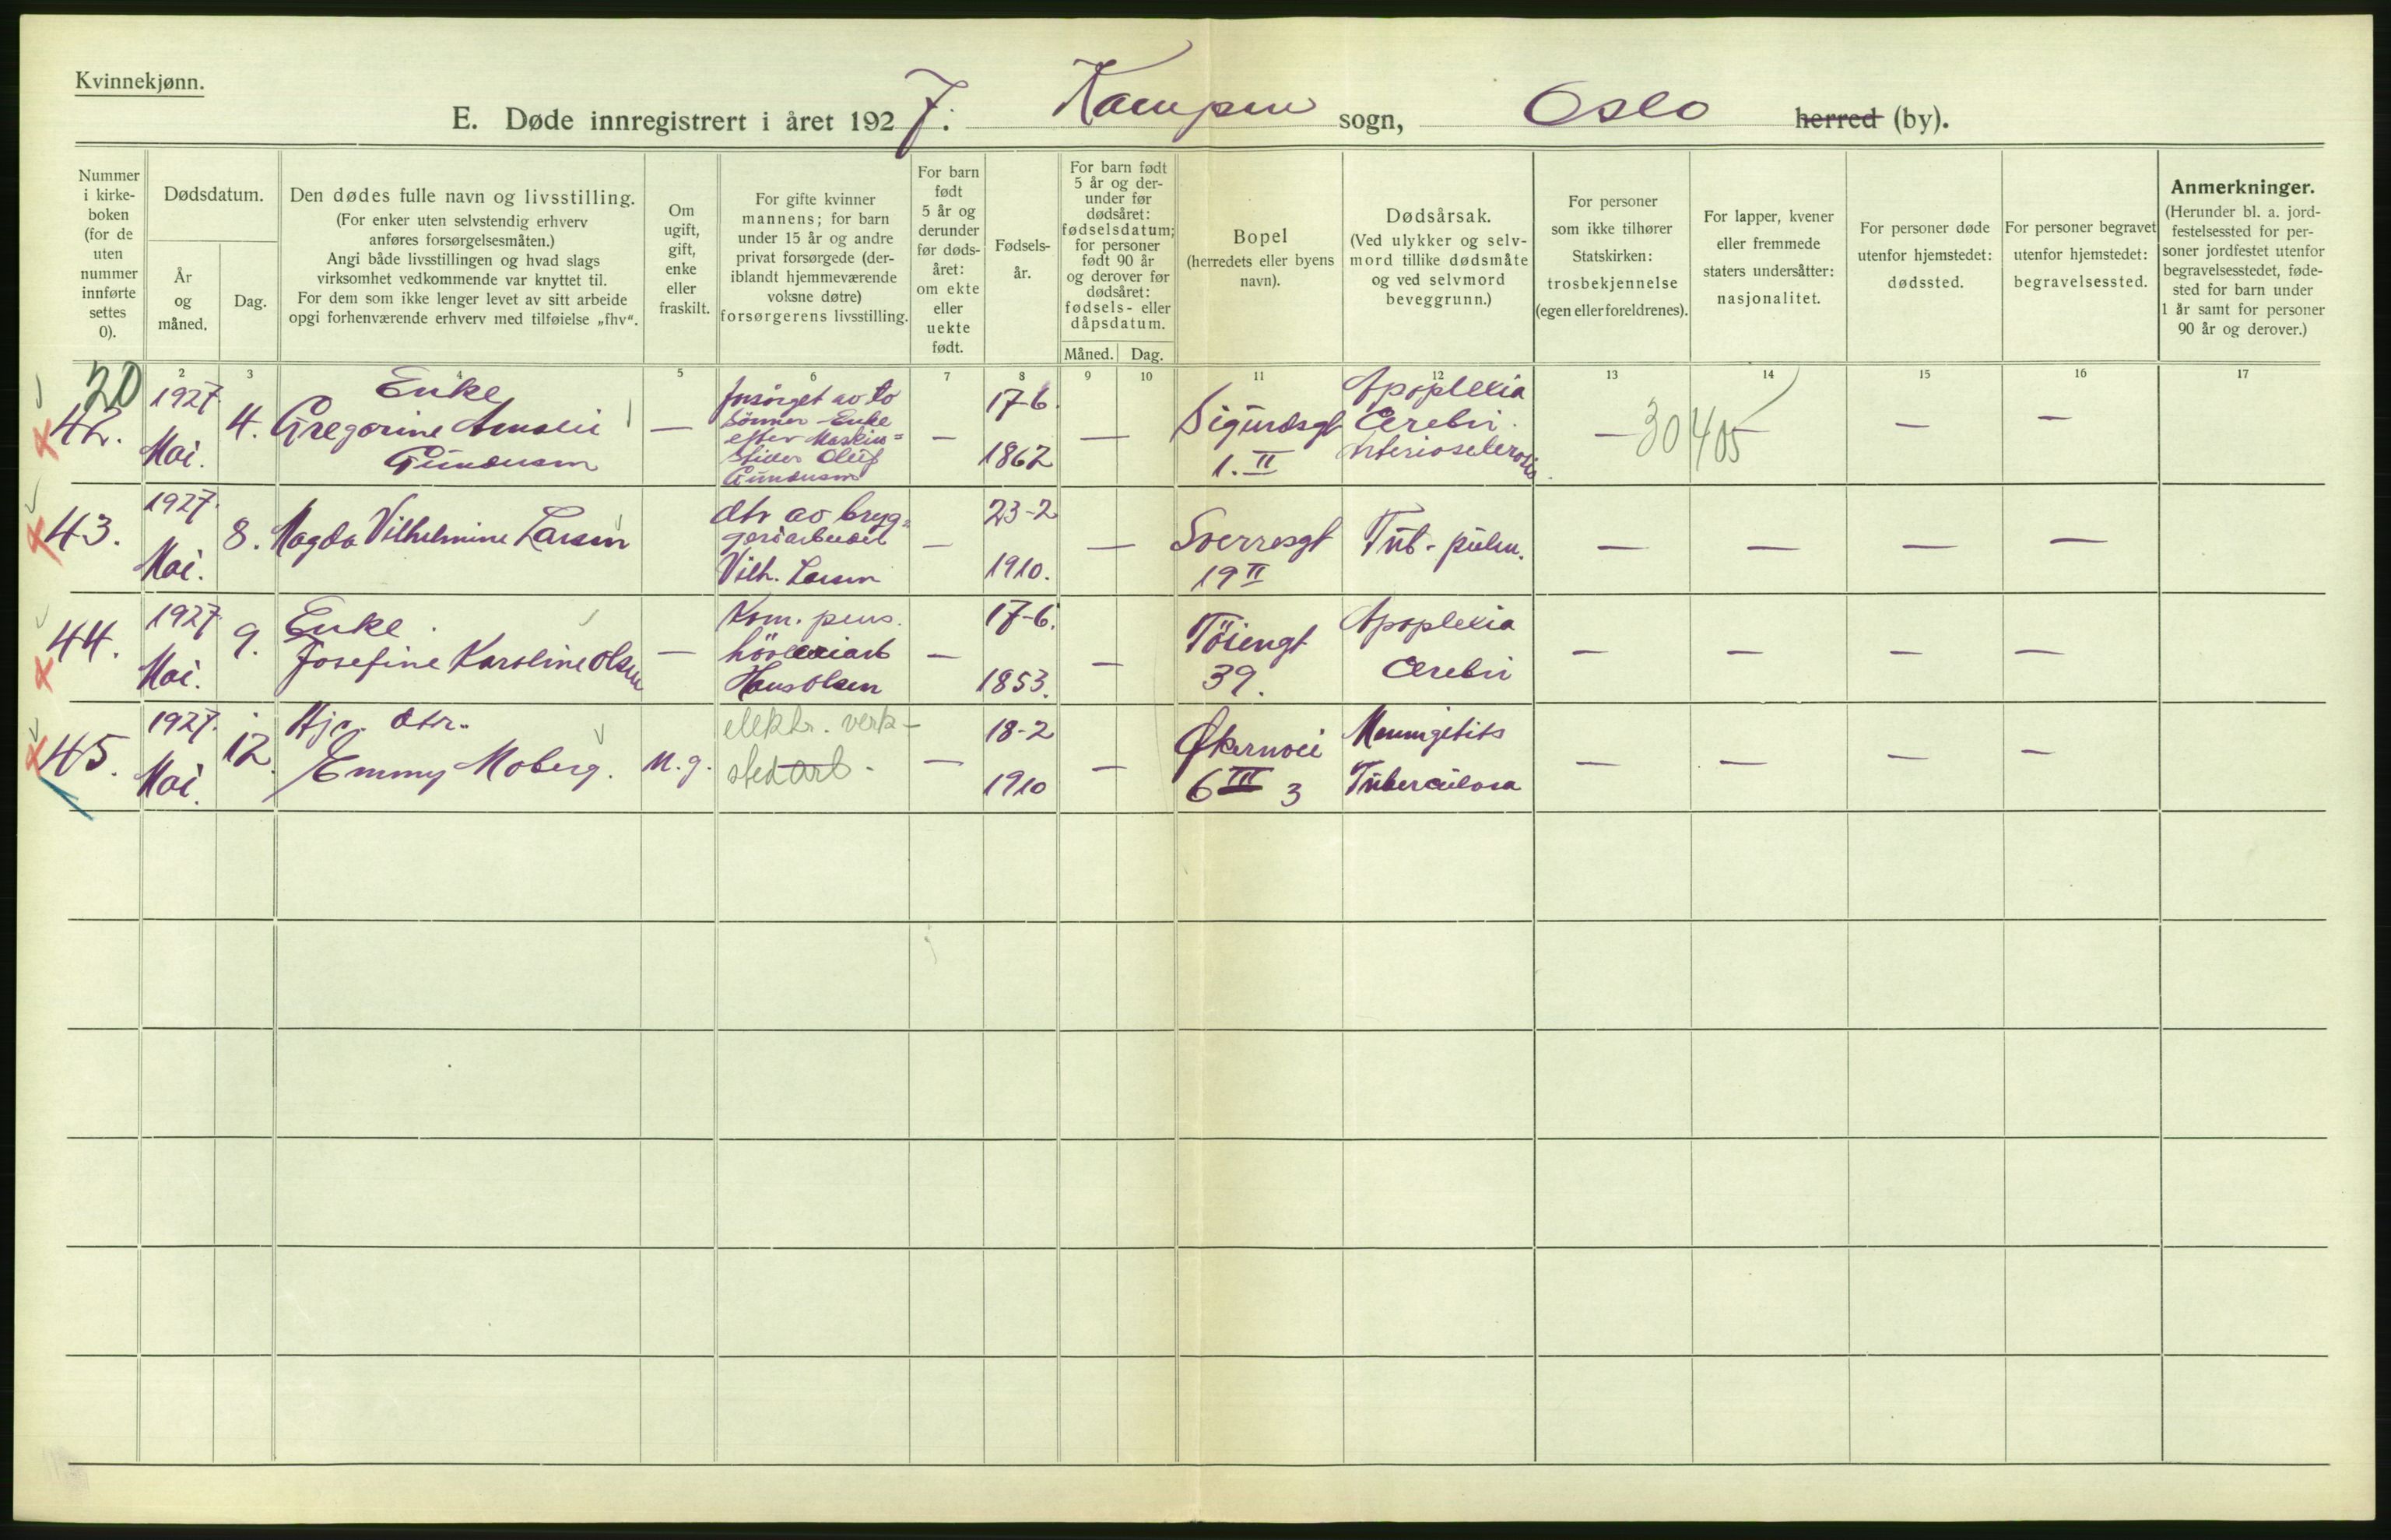 Kvinnekjønn.
E. Døde innregistrert i året 1927. Kampen sogn, Oslo herred (by).
Nummer
i kirke-
boken
(for de
uten
nummer
innførte
settes
0).
Dødsdatum.
År
og
måned.
Dag.
Den dødes fulle navn og livsstilling.
(For enker uten selvstendig erhverv
anføres forsørgelsesmåten.)
Angi både livsstillingen og hvad slags
virksomhet vedkommende var knyttet til.
For dem som ikke lenger levet av sitt arbeide
opgi forhenværende erhverv med tilføielse „fhv“.
Om
ugift,
gift,
enke
eller
fraskilt.
For gifte kvinner
mannens; for barn
under 15 år og andre
privat forsørgede (der-
iblandt hjemmeværende
voksne døtre)
forsørgerens livsstilling.
For barn
født
5 år og
derunder
før døds-
året:
om ekte
eller
uekte
født.
Fødsels-
år.
For barn født
5 år og der-
under før
dødsåret:
fødselsdatum;
for personer
født 90 år
og derover før
dødsåret:
fødsels- eller
dåpsdatum.
Måned. Dag.
Bopel
(herredets eller byens
navn).
Dødsårsak.
(Ved ulykker og selv-
mord tillike dødsmåte
og ved selvmord
beveggrunn.)
For personer
som ikke tilhører
Statskirken:
trosbekjennelse
(egen eller foreldrenes).
For lapper, kvener
eller fremmede
staters undersåtter:
nasjonalitet.
For personer døde
utenfor hjemstedet:
dødssted.
For personer begravet
utenfor hjemstedet:
begravelsessted.
Anmerkninger.
(Herunder bl. a. jord-
festelsessted for per-
soner jordfestet utenfor
begravelsesstedet,føde-
sted for barn under
1 år samt for personer
90 år og derover.)
2 3 4 5 6 7 8 9 10 11 12 13 14 15 16 17
20
42.
1927
Mai.
4.
Enke
Gregorine Amalie
Gundersen
—
forsørget av to
sönner - Enke
efter Maskin=
stiller Oluf
Gundersen
—
17-6.
1862
—
Sigurdsgt
1. II
Apoplexia
Cerebri.
Arteriosclerosis
— 30405
—
—
43.
1927.
Mai.
8.
Magda Vilhelmine Larsen
dtr av bryg=
geriarbeider
Vilh. Larsen
—
23-2
1910.
—
Sverresgt
19 II
Tub. pulm.
—
—
—
—
44.
1927
Mai.
9.
Enke.
Josefine Karoline Olsen
—
Kom. pens.
Hans Olsen
—
17-6.
1853.
—
Töiengt
39.
Apoplexia
Cerebri
—
—
—
—
45.
1927.
Mai.
12.
Hj. dtr.
Emmy Moberg.
U. g.
elektr. verk-
stedarb.
—
18-2
1910
—
Økernvei
6 III 3
Meningitits
Tuberculosa
—
—
—
—